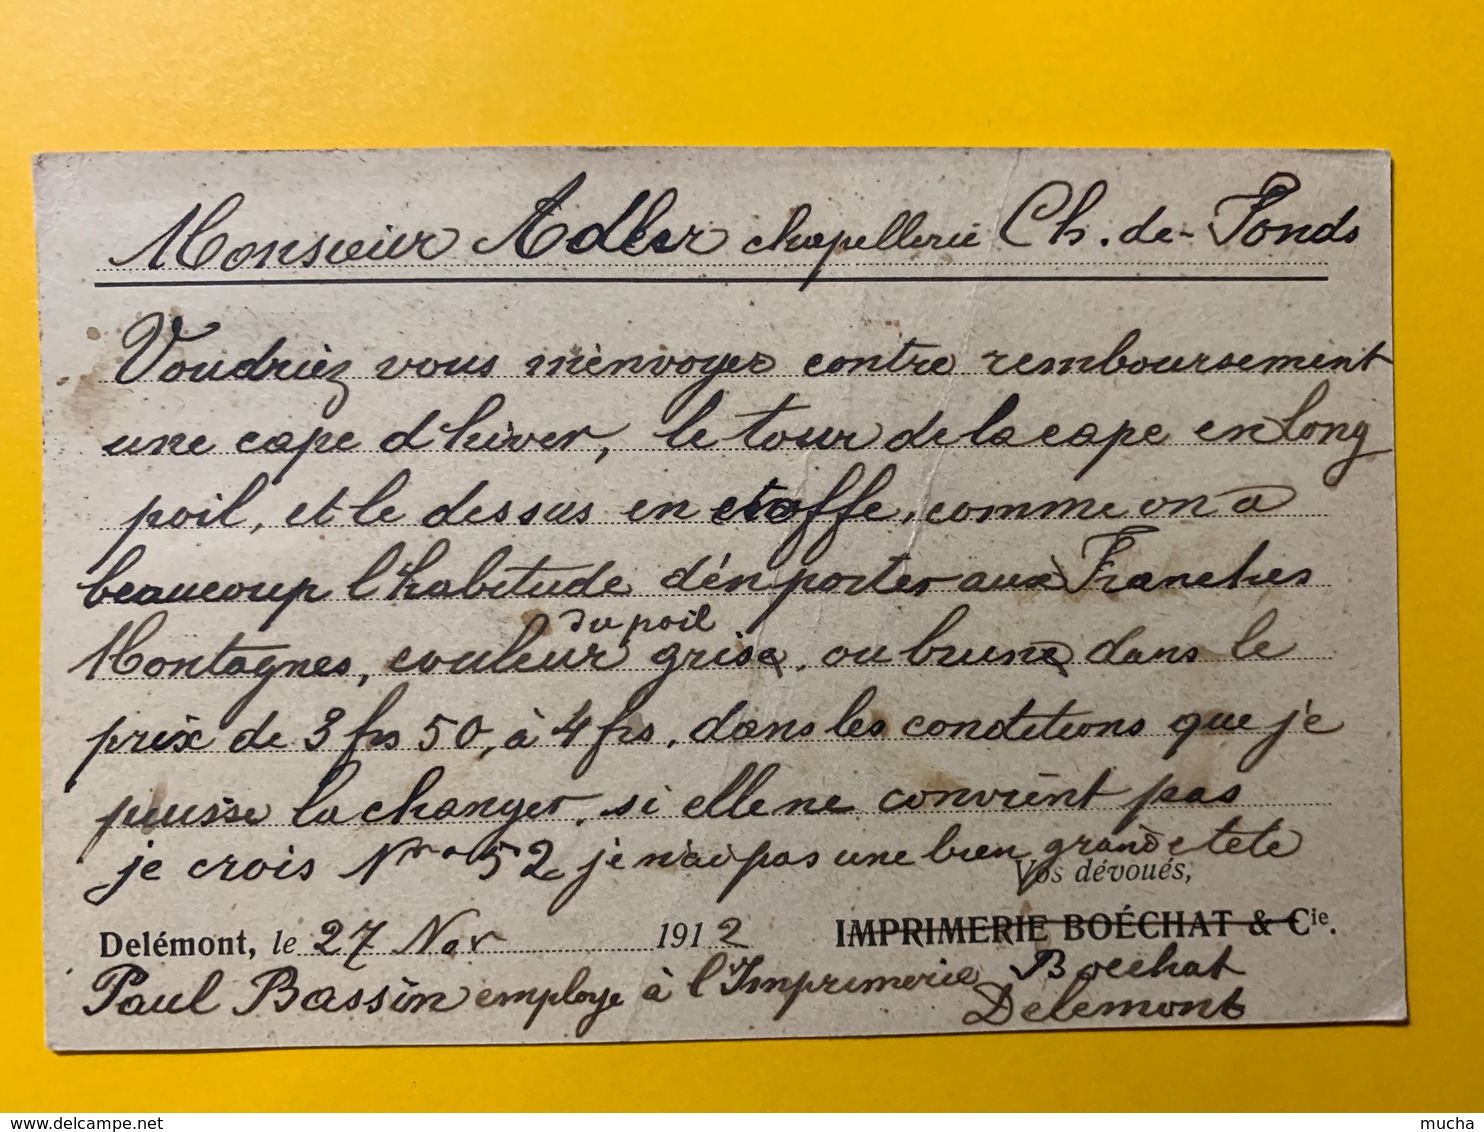 Monsieur Adler chapellerie Ch.-de-Fonds
Voudriez vous m'envoyer contre remboursement
une cape d'hiver, le tour de la cape en long
poil, et le dessus en étoffe, comme on a
beaucoup l'habitude d'én porter aux Franches
du poil
Montagnes, couleur grise, ou brune dans le
prix de 3 frs 50, à 4 frs, dans les conditions que je
puisse la changer, si elle ne convient pas
je crois Nro 52 je n'ai pas une bien grande tete
Vos dévoués,
Delémont, le 27 Nov 1912 IMPRIMERIE BOÉCHAT & Cie.
Paul Bassin employe à l'Imprimerie Boechat
Delemont
delcampe.net
mucha